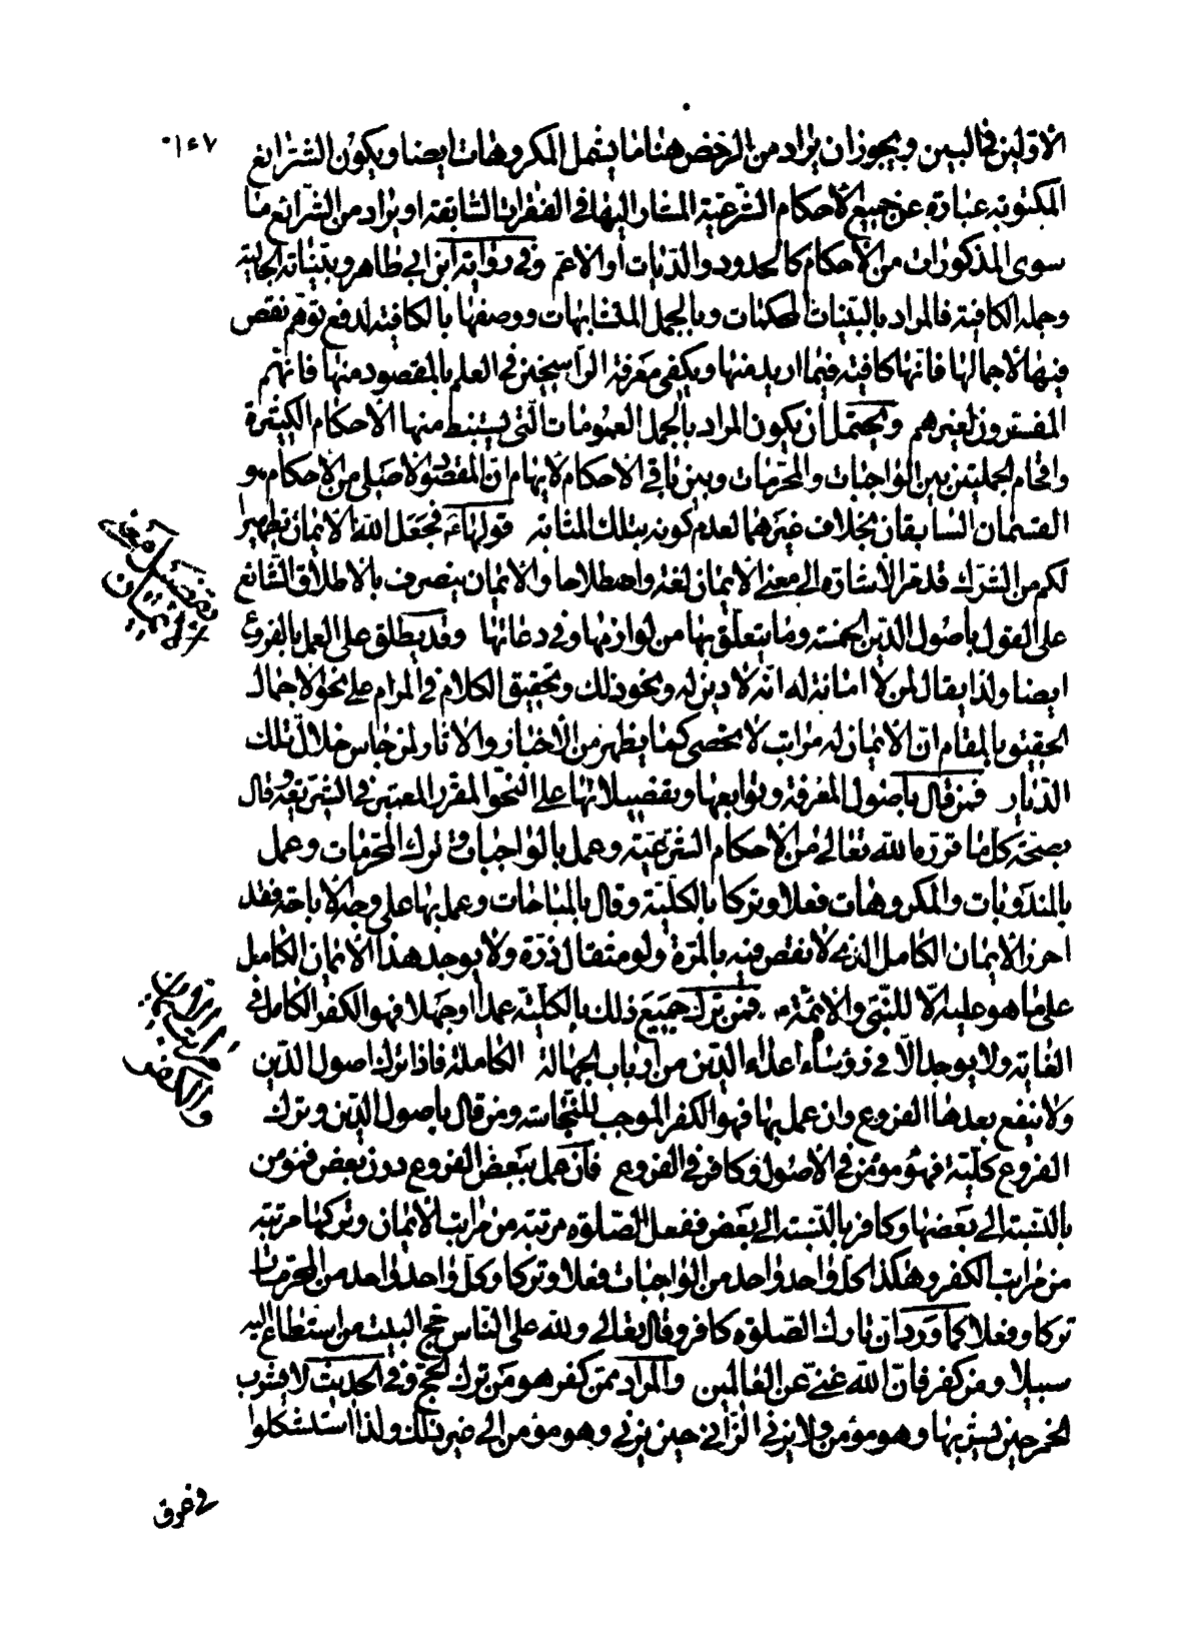 الاوّلين في البين ويجوز ان يراد من الرخص هنا ما يشمل المكروهات ايضا ويكون الشرائع
المكتوبة عبارة عن جميع الاحكام الشرعيّة المشار اليها في الفقرات السّابقة او يراد من الشّرائع ما
سوى المذكورات من الاحكام كالحدود والدّيات او الاعمّ وفي رواية ابن ابي طاهر وبيّناته الجالية
وجمله الكافية فالمراد بالبيّنات المحكمات وبالجمل المتشابهات ووصفها بالكافية لدفع توهّم نقص
فيها لاجمالها فانّها كافية فيما اريد منها ويكفى معرفة الرّاسخين في العلم بالمقصود منها فانّهم
المفسّرون لغيرهم ويحتمل ان يكون المراد بالجمل العمومات الّتى يستنبط منها الاحكام الكثيرة
واقحام الجملتين بين الواجبات والمحرّمات وبين باقي الاحكام لايهام انّ المقصود الاصلى من الاحكام هو
القسمان السّابقان بخلاف غيرهما لعدم كونه بتلك المثابة قولها ع فجعل الله الايمان تطهيرا
لكم من الشّرك قد مرّ الاشارة الى معنى الايمان لغة واصطلاحا والايمان ينصرف بالاطلاق الشّائع
على القول باصول الدّين الخمسة وما يتعلّق بها من لوازمها وفي دعائها وقد يطلق على العمل بالفروع
ايضا ولذا يقال لمن لا امانة له انّه لا دين له ونحو ذلك وتحقيق الكلام في المرام على نحو الاجمال
الحقيق بالمقام انّ الايمان له مراتب لا تحصى كما يظهر من الاخبار والاثار لمن جاس خلال تلك
الدّيار فمن قال باصول المعرفة وتوابعها وتفصيلاتها على النّحو المقرر المعتبر في الشّريعة وقال
بصحّة كلّ ما قرّره الله تعالى من الاحكام الشرعيّة وعمل بالواجبات وترك المحرّمات وعمل
بالمندوبات والمكروهات فعلا وتركا بالكلّيّة وقال بالمباحات وعمل بها على وجه الاباحة فقد
احرز الايمان الكامل الذي لا نقص فيه بالمرّة ولو مثقال ذرّة ولا يوجد هذا الايمان الكامل
على ما هو عليه الّا للنّبىّ والائمّة م. فمن ترك جميع ذلك بالكلّيّة عمدا او جهلا فهو الكفر الكامل في
الغاية ولا يوجد الّا في رؤساء اعداء الدّين من ارباب الجهالة الكاملة فاذا ترك اصول الدّين
ولا ينفع بعدها الفروع وان عمل بها فهو الكفر الموجب للنّجاسة ومن قال باصول الدّين وترك
الفروع كلّيّة فهو مؤمن في الاصول وكافر في الفروع فان عمل ببعض الفروع دون بعض فمؤمن
بالنّسبة الى بعضها وكافر بالنّسبة الى بعض ففعل الصّلوة مرتبة من مراتب الايمان وتركها مرتبة
من مراتب الكفر وهكذا كلّ واحد واحد من الواجبات فعلا وتركا وكلّ واحد واحد من المحرّمات
تركا وفعلا كما ورد انّ تارك الصّلوة كافر وقال تعالى ولله على النّاس حجّ البيت من استطاع اليه
سبيلا ومن كفر فانّ الله غنىّ عن العالمين والمراد ممّن كفر هو من ترك الحجّ وفي الحديث لا يشرب
الخمر حين يشربها وهو مؤمن ولا يزني الزّاني حين يزني وهو مؤمن الى غير ذلك ولذا استشكلوا
في فرق
١٤٧
تفصيل معنى
الايمان
مراتب الايمان
والكفر